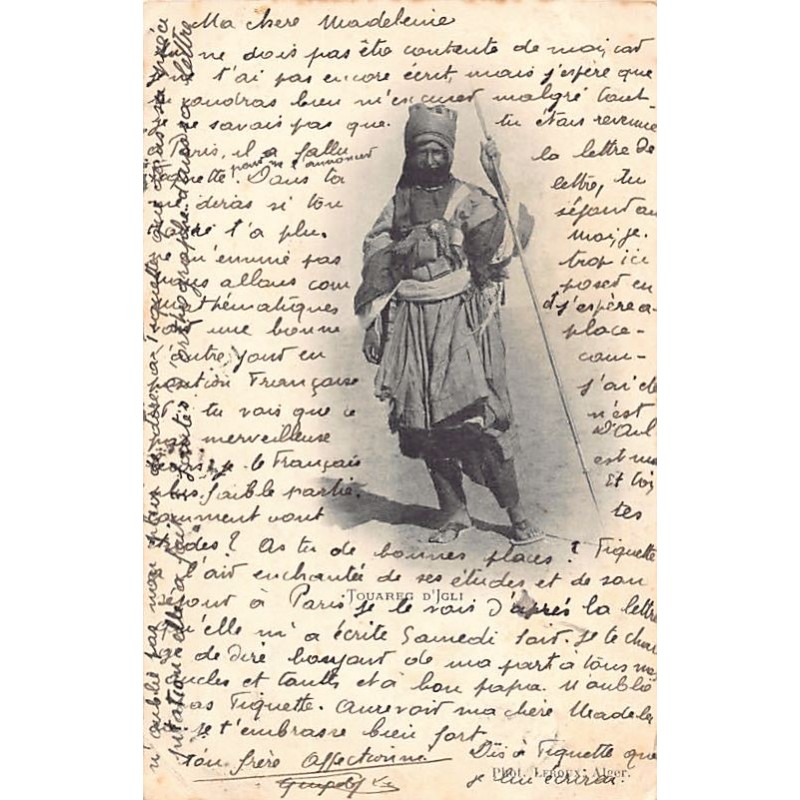 Ma chère Madeleine
ne dois pas être contente de moi, car
t'ai pas encore écrit, mais j'espère que
voudras bien m'excuser malgré tout
savais pas que tu étais revenue
Paris, il a fallu la lettre de
pour me l'annoncer
Dans ta lettre, tu
diras si ton séjour au
t'a plu. Moi, je
m'ennuie pas trop ici
nous allons com poser en
thématiques et j'espère a
une bonne place
l'autre jour en com-
position Française j'ai de
tu vois que ce n'est
merveilleuse D'ail
le Français est ma
plus faible partie. Et toi,
comment vont tes
études? As tu de bonnes places? Fiquette
l'air enchantée de ses études et de son
à Paris je le vois d'après la lettre
qu'elle m'a écrite Samedi soir. Je te char
de dire bonjour de ma part à tous mes
oncles et tantes et à bon papa. N'oublie
pas Fiquette. Aurevoir ma chère Madele
je t'embrasse bien fort
ton frère Affectionné
Dis à Fiquette que
je lui écrirai.
TOUAREG D'IGLI
Phot. LEROUX, Alger.
n'oublie pas mon
fautes d'orthographe dans sa lettre